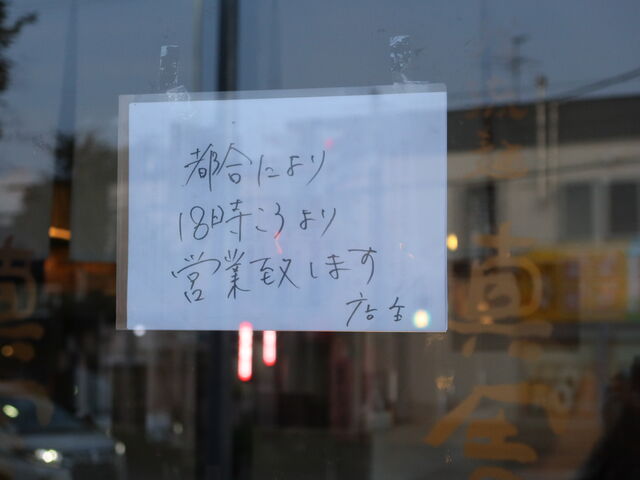 都合により
18時ころより
営業致します
店主
真